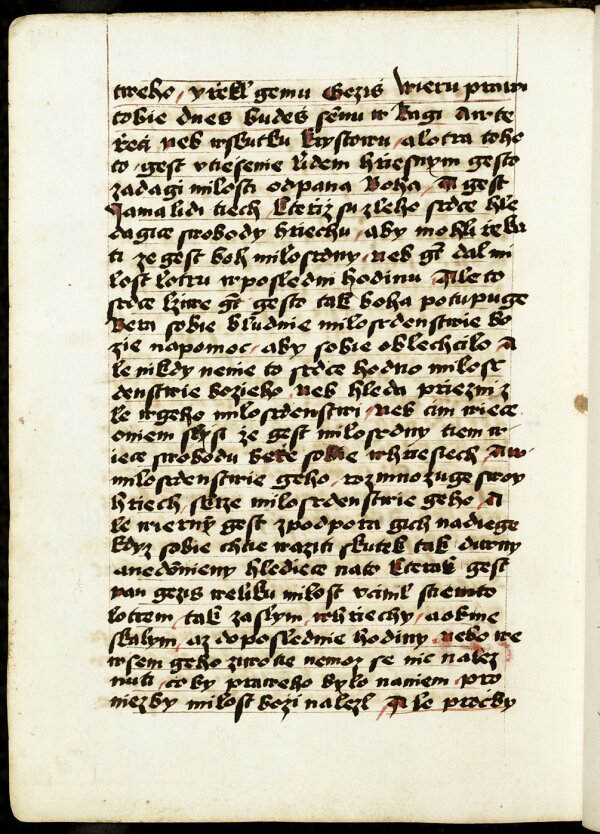 tweho / y řekl gemu Gezis Wieru prawi
tobie dnes budeš semnu w Ragi A w te
řeči neb wskutku krystowu / a lotra toho
to / gest vtiesenie lidem hriesnym gesto
zadagi milosti od pana Boha / A gest
Jama lidi tiech / kteřiz su zleho srdce hle
dagice swobody hriechu / aby mohli řeka
ti ze gest boh milosrdny / neb gt dal mi
lost lotru w posledni hodinu / Ale to
srdce lziwe gt gesto tak boha potupuge
Bera sobie bludnie milosrdenstwie bo
zie na pomoc / aby sobie oblechcilo A
le nikdy nenie to srdce hodno milosr
denstwie bozieho / neb hleda priezni z
le w geho milosrdenstwi / neb cim wiece
oniem slysi ze gest milosrdny tiem w
iece swobodu beře sobie w hriesiech A w
milosrdenstwie geho / rozmnozuge swoy
hriech skrze milosrdenstwie geho / A
le wierny gest z podpora gich nadiege
kdyz sobie chtie wraziti skutek tak diwny
a nedomieny hlediece na to kterak gest
pan gezis weliku milost vcinil s tiemto
lotrem / tak zaslym w hriechy / a okme
skalym / az do poslednie hodiny / nebo we
wsem geho zwotie nemoz se nic nalez
nuti / co by praweho bylo na niem / pro
niezby milost bozi nalezl / A le procby